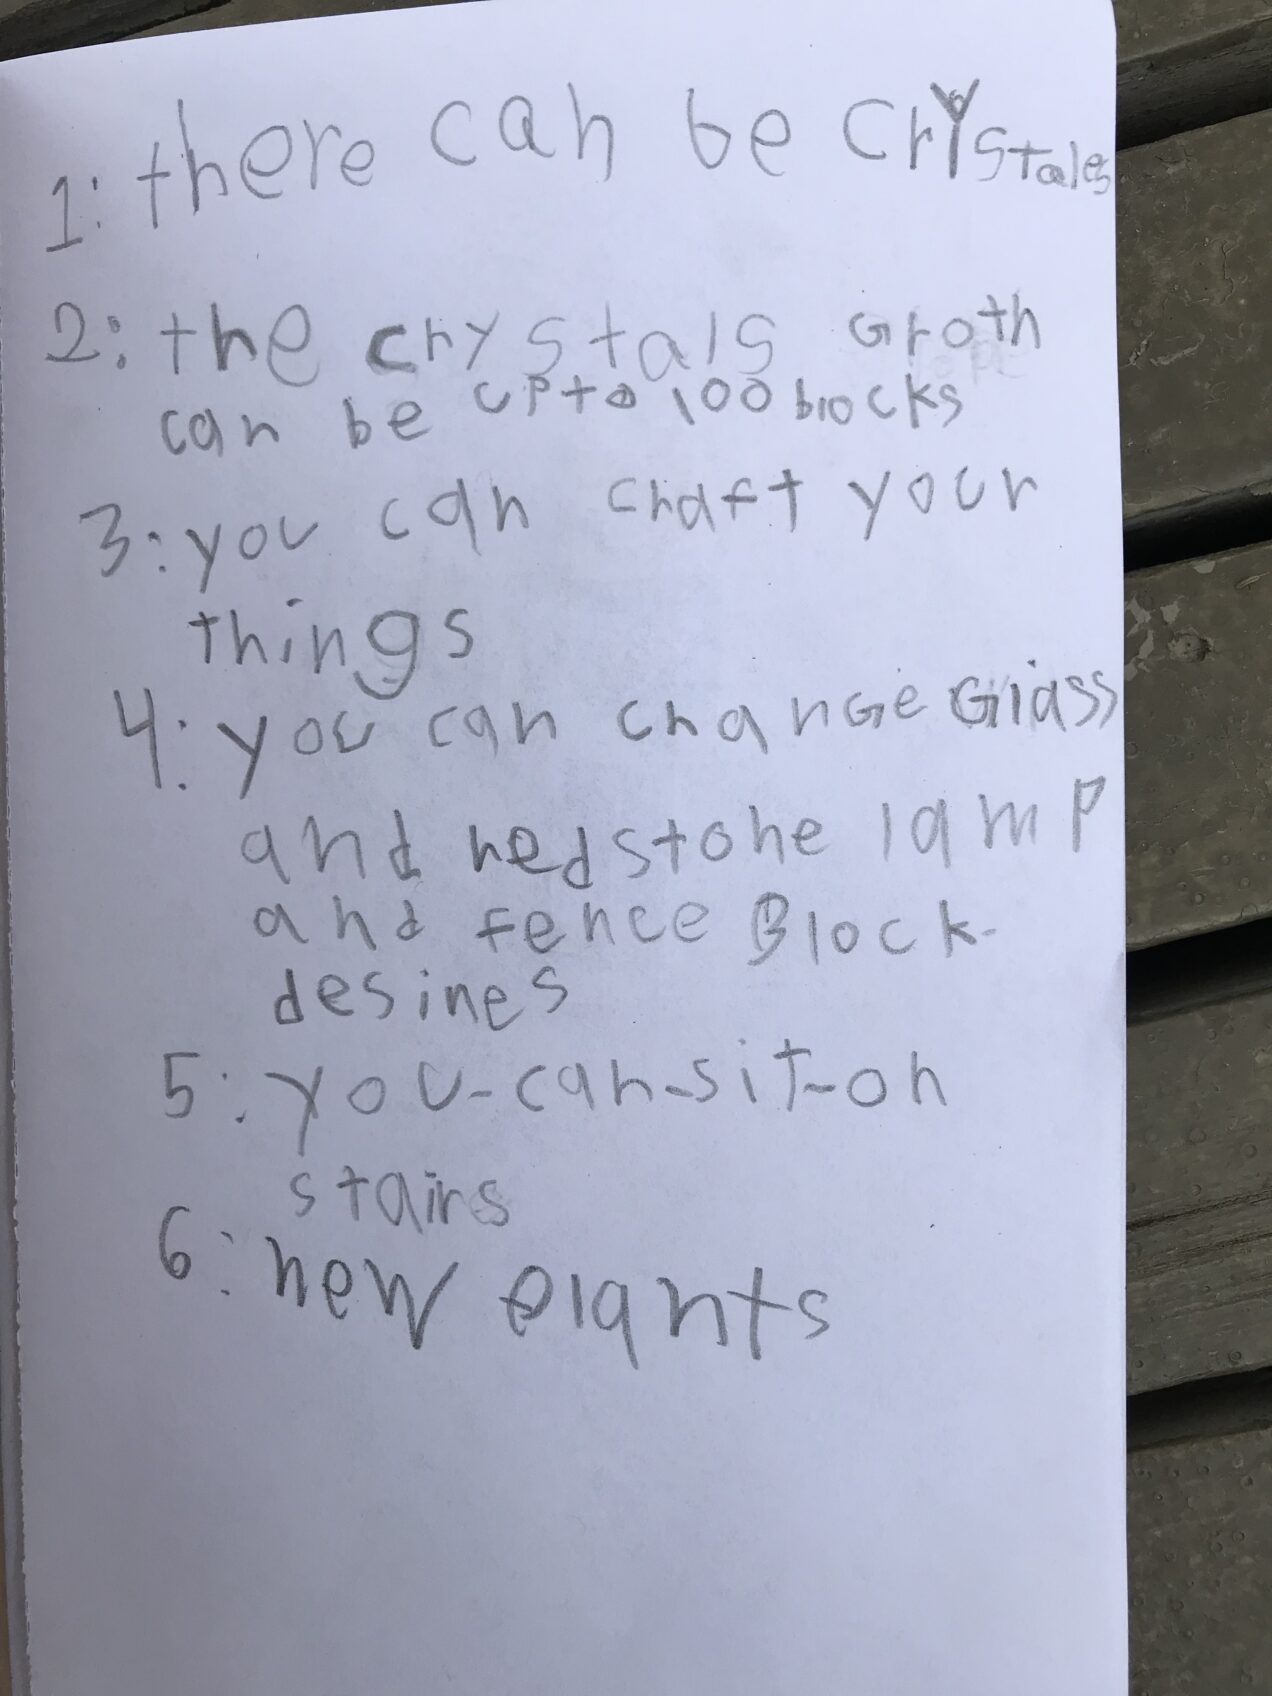 1: there can be crystales
2: the crystals Groth
can be up to 100 blocks
3: you can craft your
things
4: you can change Glass
and redstone lamp
and fence Block-
desines
5: you-can-sit-on
stairs
6: new plants